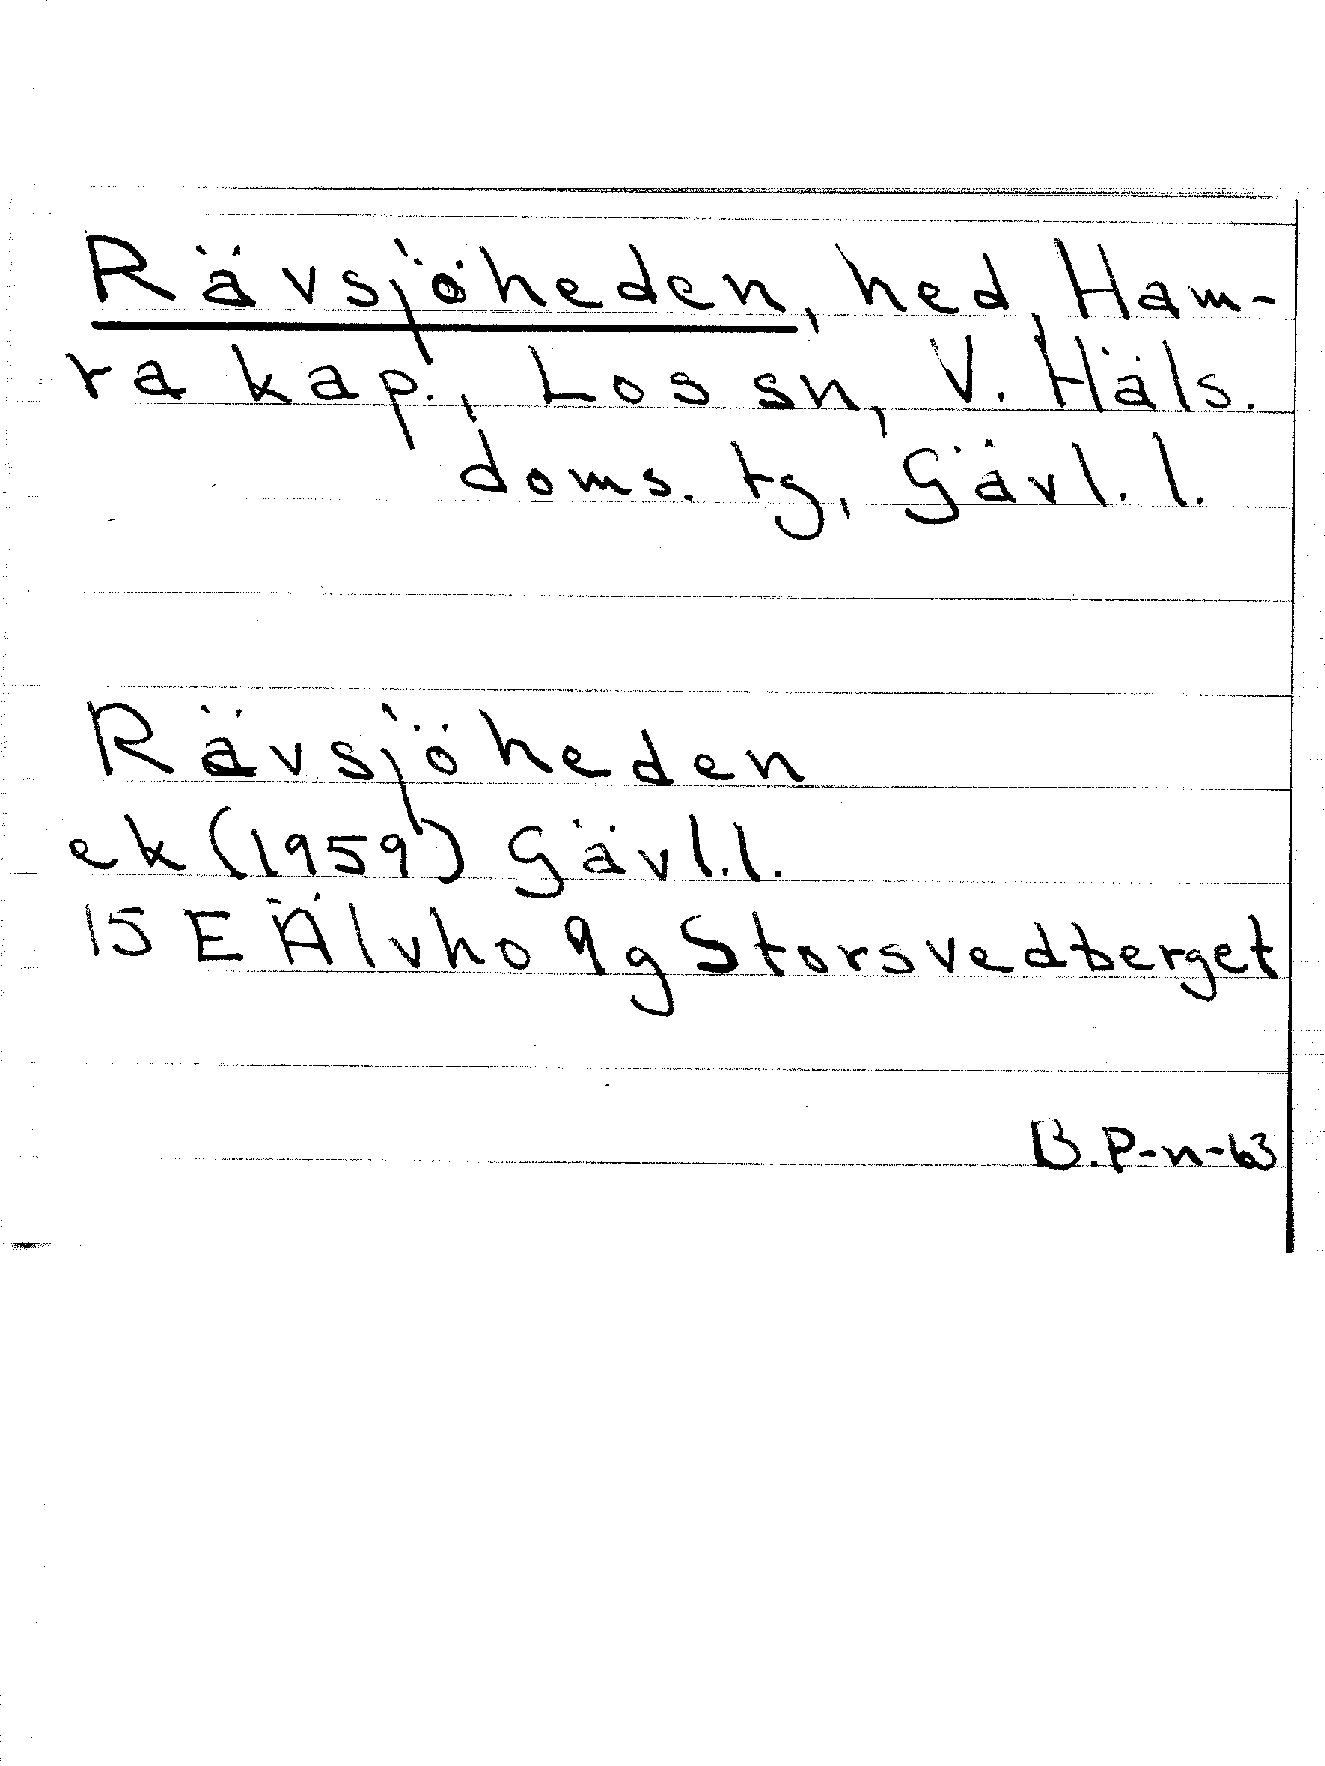 Rävsjöheden, hed, Ham-
ra kap., Los sn, V. Häls.
doms. tg, Gävl. l.
Rävsjöheden
ek (1959) Gävl. l.
15 E Älvho 9g Storsvedberget
B.P-n-63